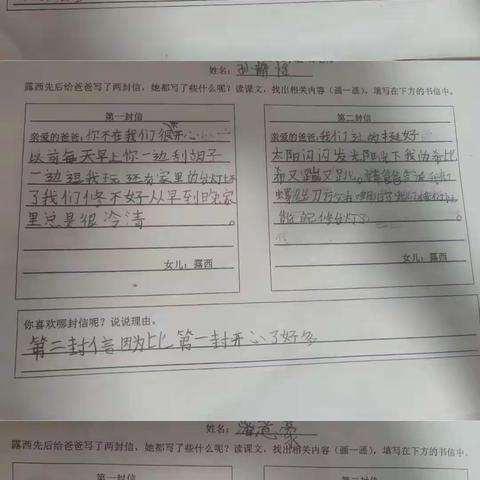 姓名：孙
露西先后给爸爸写了两封信，她都写了些什么呢？读课文，找出相关内容（画一画），填写在下方的书信中。
第一封信
亲爱的爸爸：你不在我们很开心
以前每天早上你一边刮胡子
一边逗我玩还有家里的台灯坏
了我们修不好从早到晚家
里总是很冷清。
女儿：露西
第二封信
亲爱的爸爸：我们过的挺好
太阳闪闪发光阳光下我的希比
希又蹦又跳。
能把修台灯了
女儿：露西
你喜欢哪封信呢？说说理由。
第二封信因为比第一封开心了好多
姓名：潘意豪
露西先后给爸爸写了两封信，她都写了些什么呢？读课文，找出相关内容（画一画），填写在下方的书信中。
第一封信
第二封信